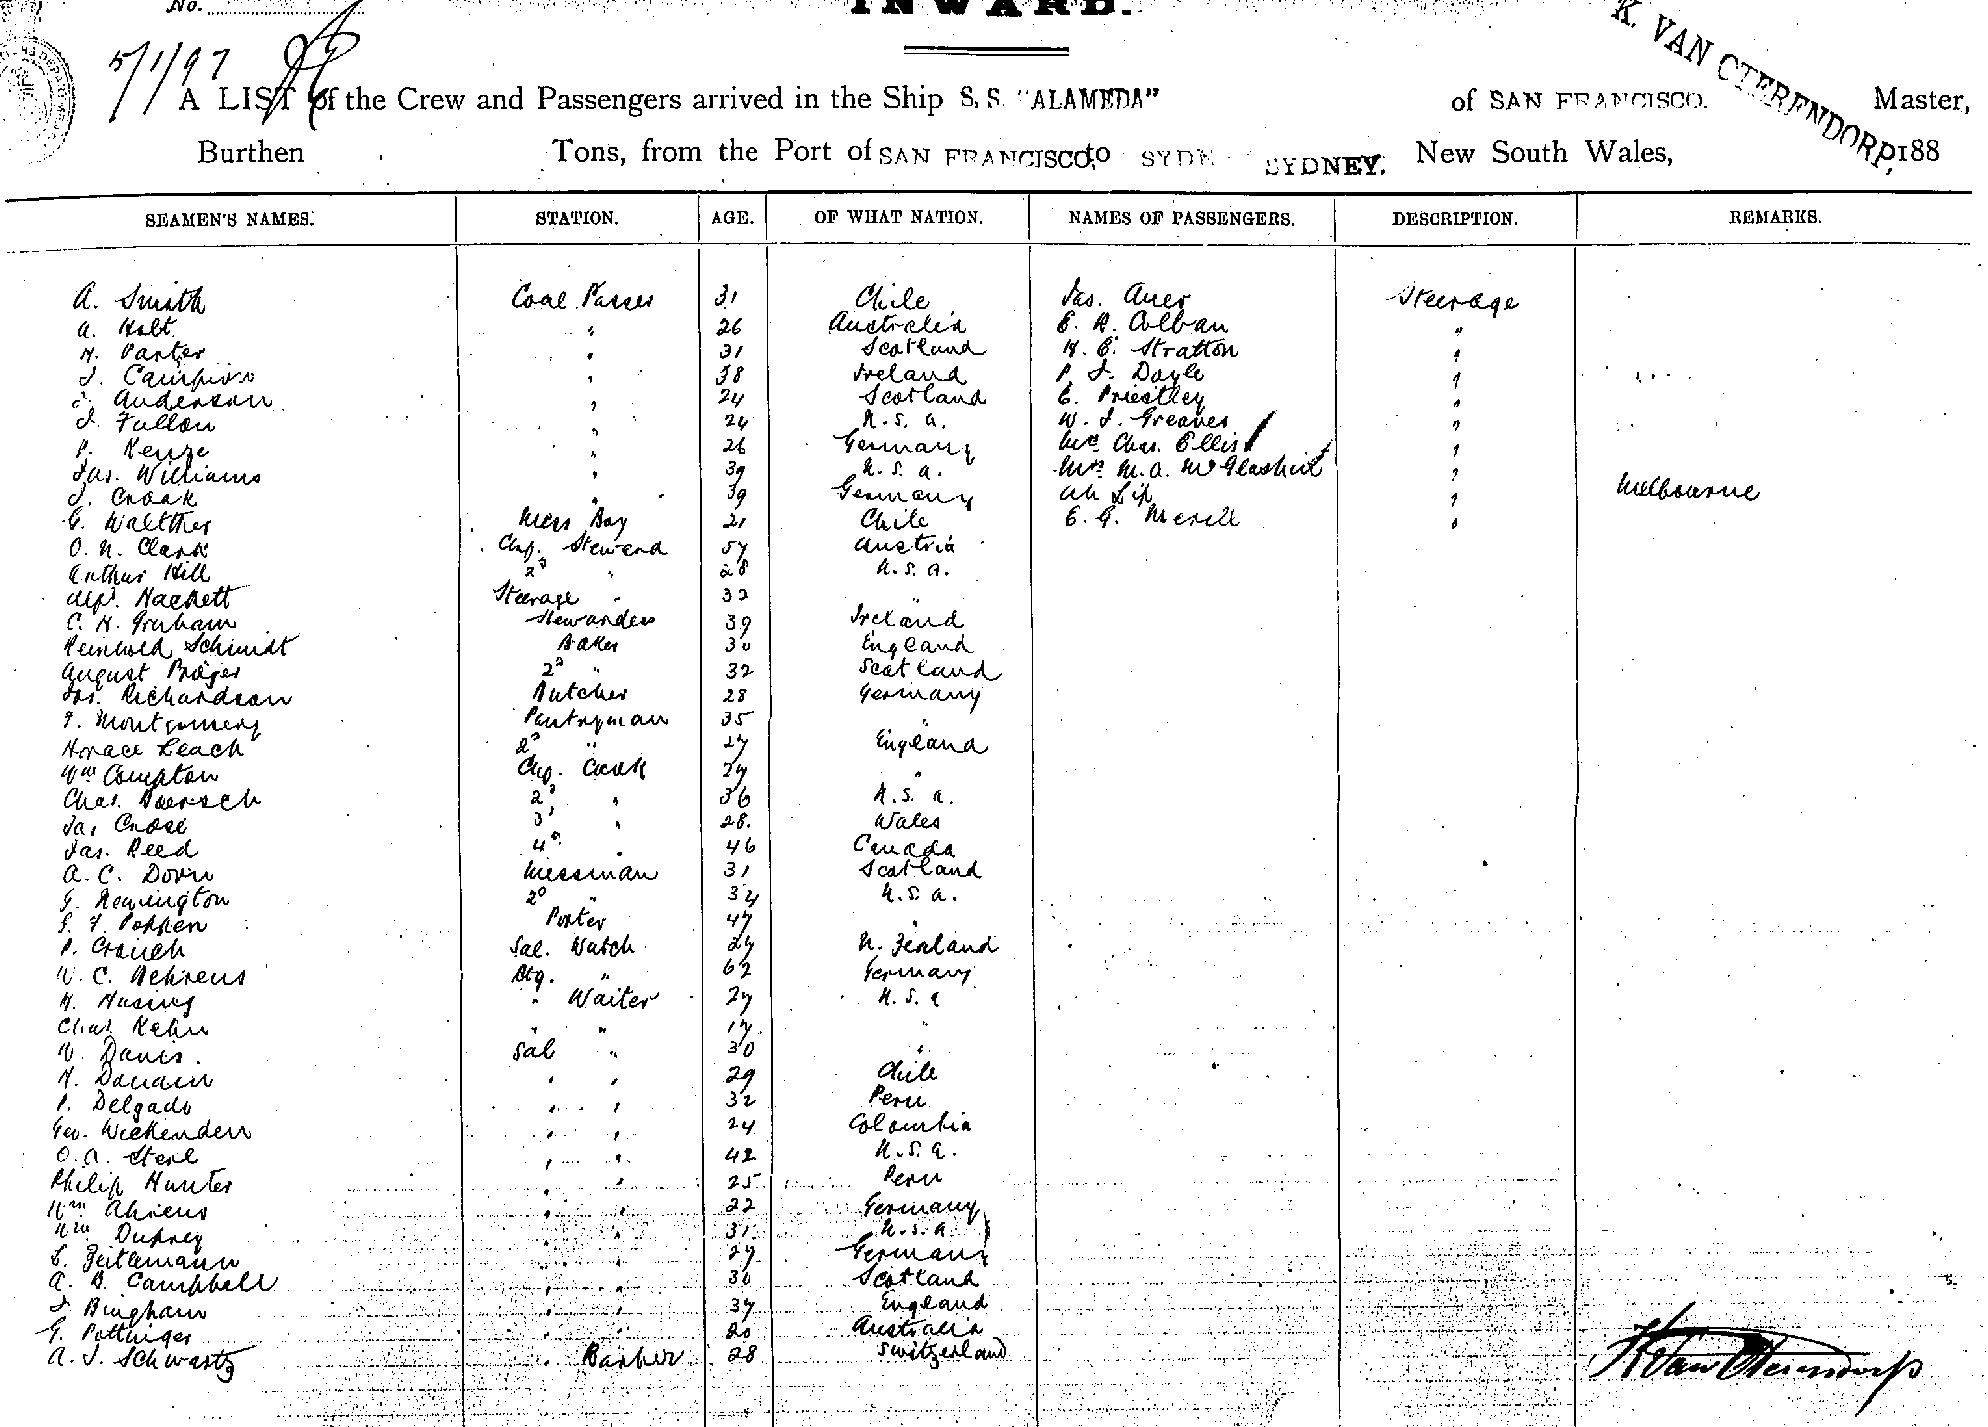 No.
INWARD.
5/1/97
K. VAN OTERENDORP,
A LIST of the Crew and Passengers arrived in the Ship S.S. "ALAMEDA" of SAN FRANCISCO. Master,
Burthen Tons, from the Port of SAN FRANCISCO, to SYDN SYDNEY. New South Wales, 188
SEAMEN'S NAMES. STATION. AGE. OF WHAT NATION. NAMES OF PASSENGERS. DESCRIPTION. REMARKS.
A. Smith Coal Passer 31 Chile Jas. Auer Steerage
A. Holt " 26 Australia E. R. Colban "
H. Porter " 31 Scotland H. E. Stratton "
J. Campion " 38 Ireland P. J. Doyle "
J. Anderson " 24 Scotland E. Priestley "
J. Fullon " 24 U.S.A. W. J. Greaves "
P. Kenze " 26 Germany Mrs. Chas. Ellis "
Jas. Williams " 39 U.S.A. Mrs. M.A. McGlashen "
J. Crook " 39 Germany Ah Lip " Melbourne
G. Walther Mess Boy 21 Chile E. G. Merill "
O. N. Clark Chf. Steward 57 Austria
Arthur Hill 2d " 28 U.S.A.
Alf. Hackett Steerage " 32 "
C. H. Graham Stewardess 39 Ireland
Reinhold Schmidt Baker 30 England
August Präger 2d " 32 Scotland
Jas. Richardson Butcher 28 Germany
T. Montgomery Pantryman 35 "
Horace Leach 2d " 27 England
Wm Compton Chf. Cook 27 "
Chas. Boersch 2d " 36 U.S.A.
Jas Crose 3d " 28. Wales
Jas. Reed 4th " 46 Canada
A. C. Dorn Messman 31 Scotland
G. Remington 2d " 34 U.S.A.
S. F. Popken Porter 47 "
P. Crouch Sal. Watch 27 N. Zealand
W. C. Behrens Stg. " 62 Germany
H. Husing " Waiter 27 U.S.A
Chas. Kehn " " 17 "
W. Davis. Sal " 30 "
H. " " 29 Chile
P. Delgado " " 32 Peru
Geo. Wickenden " " 24 Colombia
O. A. Sterl " " 42 U.S.A.
Philip Hunter " " 25 Peru
Wm Ahrens " " 22 Germany
Wm Duprey " " 31 U.S.A.
L. Zeitlemann " " 27 Germany
A. B. Campbell " " 30 Scotland
J. Bingham " " 37 England
G. Pottinger " " 20 Australia
A. J. Schwartz " Barber 28 Switzerland
K Van Oterendorp